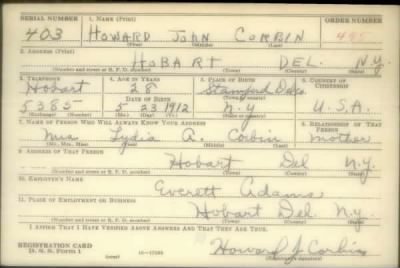 SERIAL NUMBER 1. NAME (Print) ORDER NUMBER
403 HOWARD JOHN CORBIN 445
(First) (Middle) (Last)
2. ADDRESS (Print)
HOBART DEL. N.Y.
(Number and street or R. F. D. number) (Town) (County) (State)
3. TELEPHONE 4. AGE IN YEARS 5. PLACE OF BIRTH 6. COUNTRY OF CITIZENSHIP
Hobart 28 Stamford Del Co.
DATE OF BIRTH
5385 5 23 1912 N.Y U.S.A.
(Exchange) (Number) (Mo.) (Day) (Yr.) (State or country)
7. NAME OF PERSON WHO WILL ALWAYS KNOW YOUR ADDRESS 8. RELATIONSHIP OF THAT PERSON
Mrs Lydia A. Corbin Mother
(Mr., Mrs., Miss) (First) (Middle) (Last)
9. ADDRESS OF THAT PERSON
Hobart Del N.Y.
(Number and street or R. F. D. number) (Town) (County) (State)
10. EMPLOYER'S NAME
Everett Adams
11. PLACE OF EMPLOYMENT OR BUSINESS
Hobart Del. N.Y.
(Number and street or R. F. D. number) (Town) (County) (State)
I AFFIRM THAT I HAVE VERIFIED ABOVE ANSWERS AND THAT THEY ARE TRUE.
REGISTRATION CARD
D. S. S. Form 1 Howard J Corbin